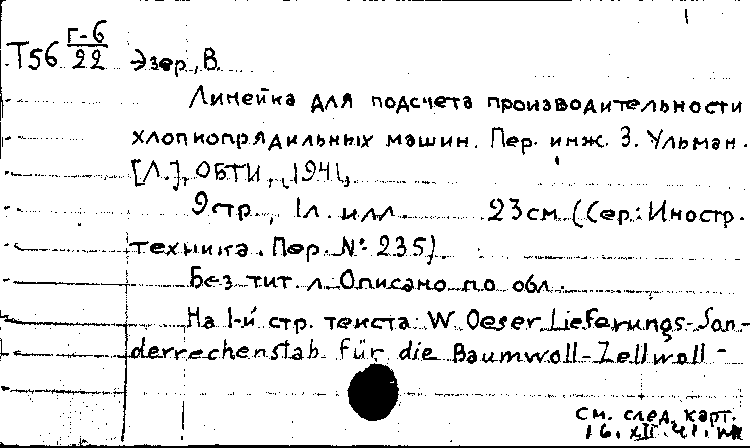 1
Т56 Г-6/22 Эзер, В.
Линейка для подсчета производительности
хлопкопрядильных машин. Пер. инж. З. Ульман.
[Л.], ОБТИ, 1941,
9 стр., 1 л. илл. 23 см (Сер: Иностр.
техника. Пер. № 235)
Без тит. л. Описано по обл.
На 1-й стр. текста: W. Oeser Lieferungs-Son-
derrechenstab für die Baumwoll-Zellwoll-
См. след. карт.
16.XII.41.